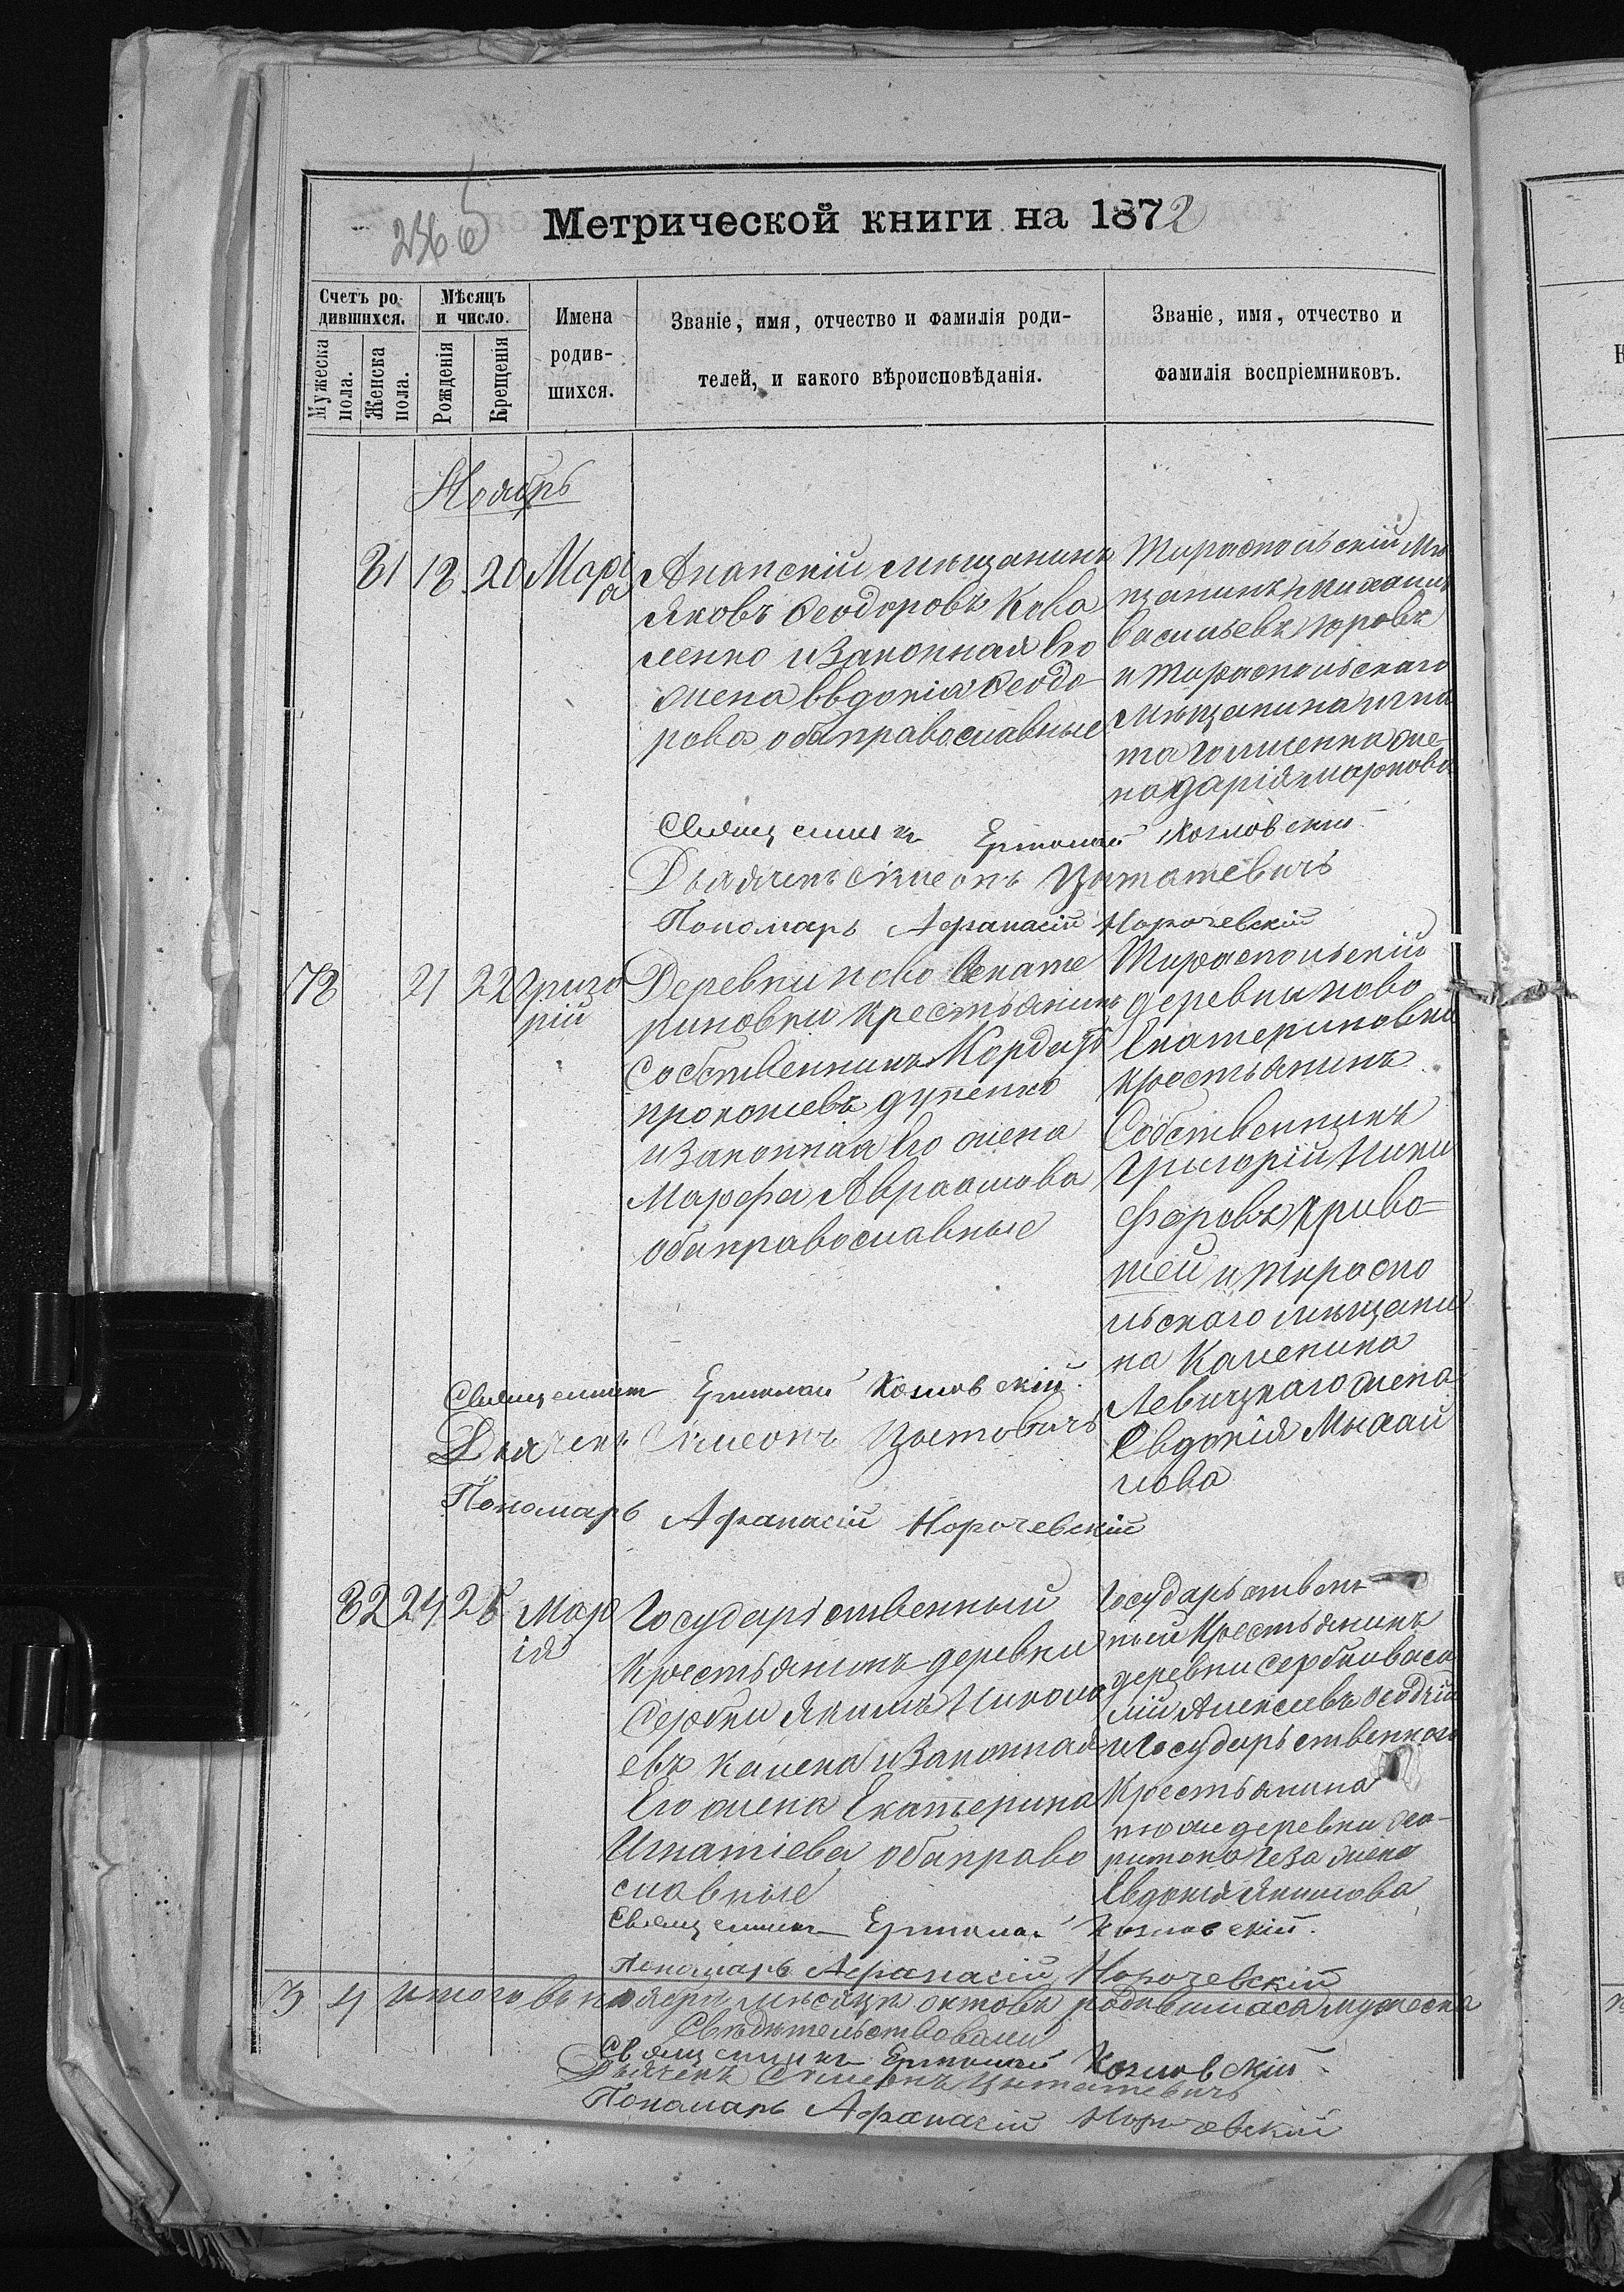 Метрической книги на 1872
Счетъ ро-
дившихся.
Мѣсяцъ
и число.
Имена
родив-
шихся.
Званіе, имя, отчество и фамилія роди-
телей, и какого вѣроисповѣданія.
Званіе, имя, отчество и
фамилія воспріемниковъ.
Мужеска
пола.
Женска
пола.
Рожденія
Крещенія
Ноябрь
31 18 20 Марі
я
Анапскій мѣщанинъ
Яковъ Ѳеодоровъ Кова
ленко и Законная Его
жена Евдокія Ѳеодо
рова оба православные
Тираспольскій мѣ
щанинъ михаилъ
Васильевъ
и Тираспольскаго
мѣщанина игна
та же
на дарія маркова
Священникъ Ермолай Козловскій
Дьячекъ Симеонъ
Пономарь Афанасій Норочевскій
78 21 22 Григо
рій
Деревни ново Екате
риновки крестьянинъ
Собственникъ
прокопіевъ дученко
и Законная Его жена
Марфа Авраамова
оба православные
Тираспольскій
деревни ново
Екатериновки
крестьянинъ
Собственникъ
Григорій Ники
форовъ криво-
шей и тираспо
льскаго мѣщани
на Каленика
Левицкаго жена
Евдокія Михаи
лова
Священникъ Ермолай Козловскій
Дьячекъ Симеонъ
Пономарь Афанасій Норочевскій
32 24 25 Мар
ія
Государственный
крестьянинъ деревни
Сербки Якимъ Никола
евъ и Законная
Его жена Екатерина
Игнатіева оба право
славные
Государствен
ный Крестьянинъ
деревни Сербки васи
лій Алексѣевъ
и Государственнаго
крестьянина
тоже деревни
жена
Евдокія Якимова
Священникъ Ермолай Козловскій
Пономарь Афанасій Норочевскій
3 4 Итого въ ноябрѣ мѣсяцѣ родившихся мужеска
Свѣдѣтельствовали
Священникъ Ермолай Козловскій
Дьячекъ Симеонъ
Пономарь Афанасій Норочевскій